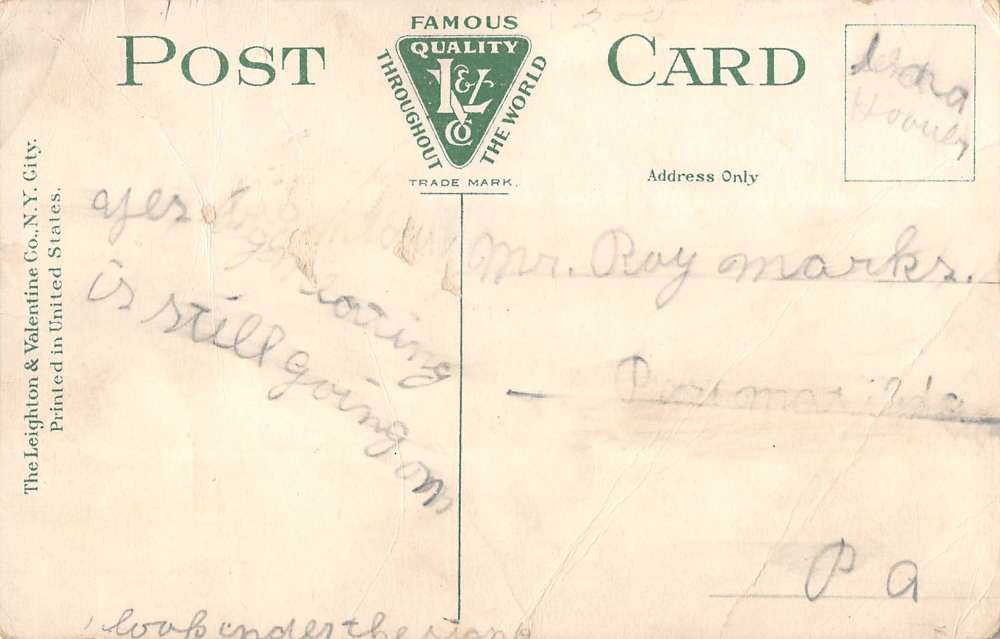 POST CARD
FAMOUS
QUALITY
L & V
Co
THROUGHOUT
THE WORLD
TRADE MARK.
Address Only
The Leighton & Valentine Co., N.Y. City.
Printed in United States.
Hoover
yes
is still going on
Mr. Roy marks.
Pa
look under the